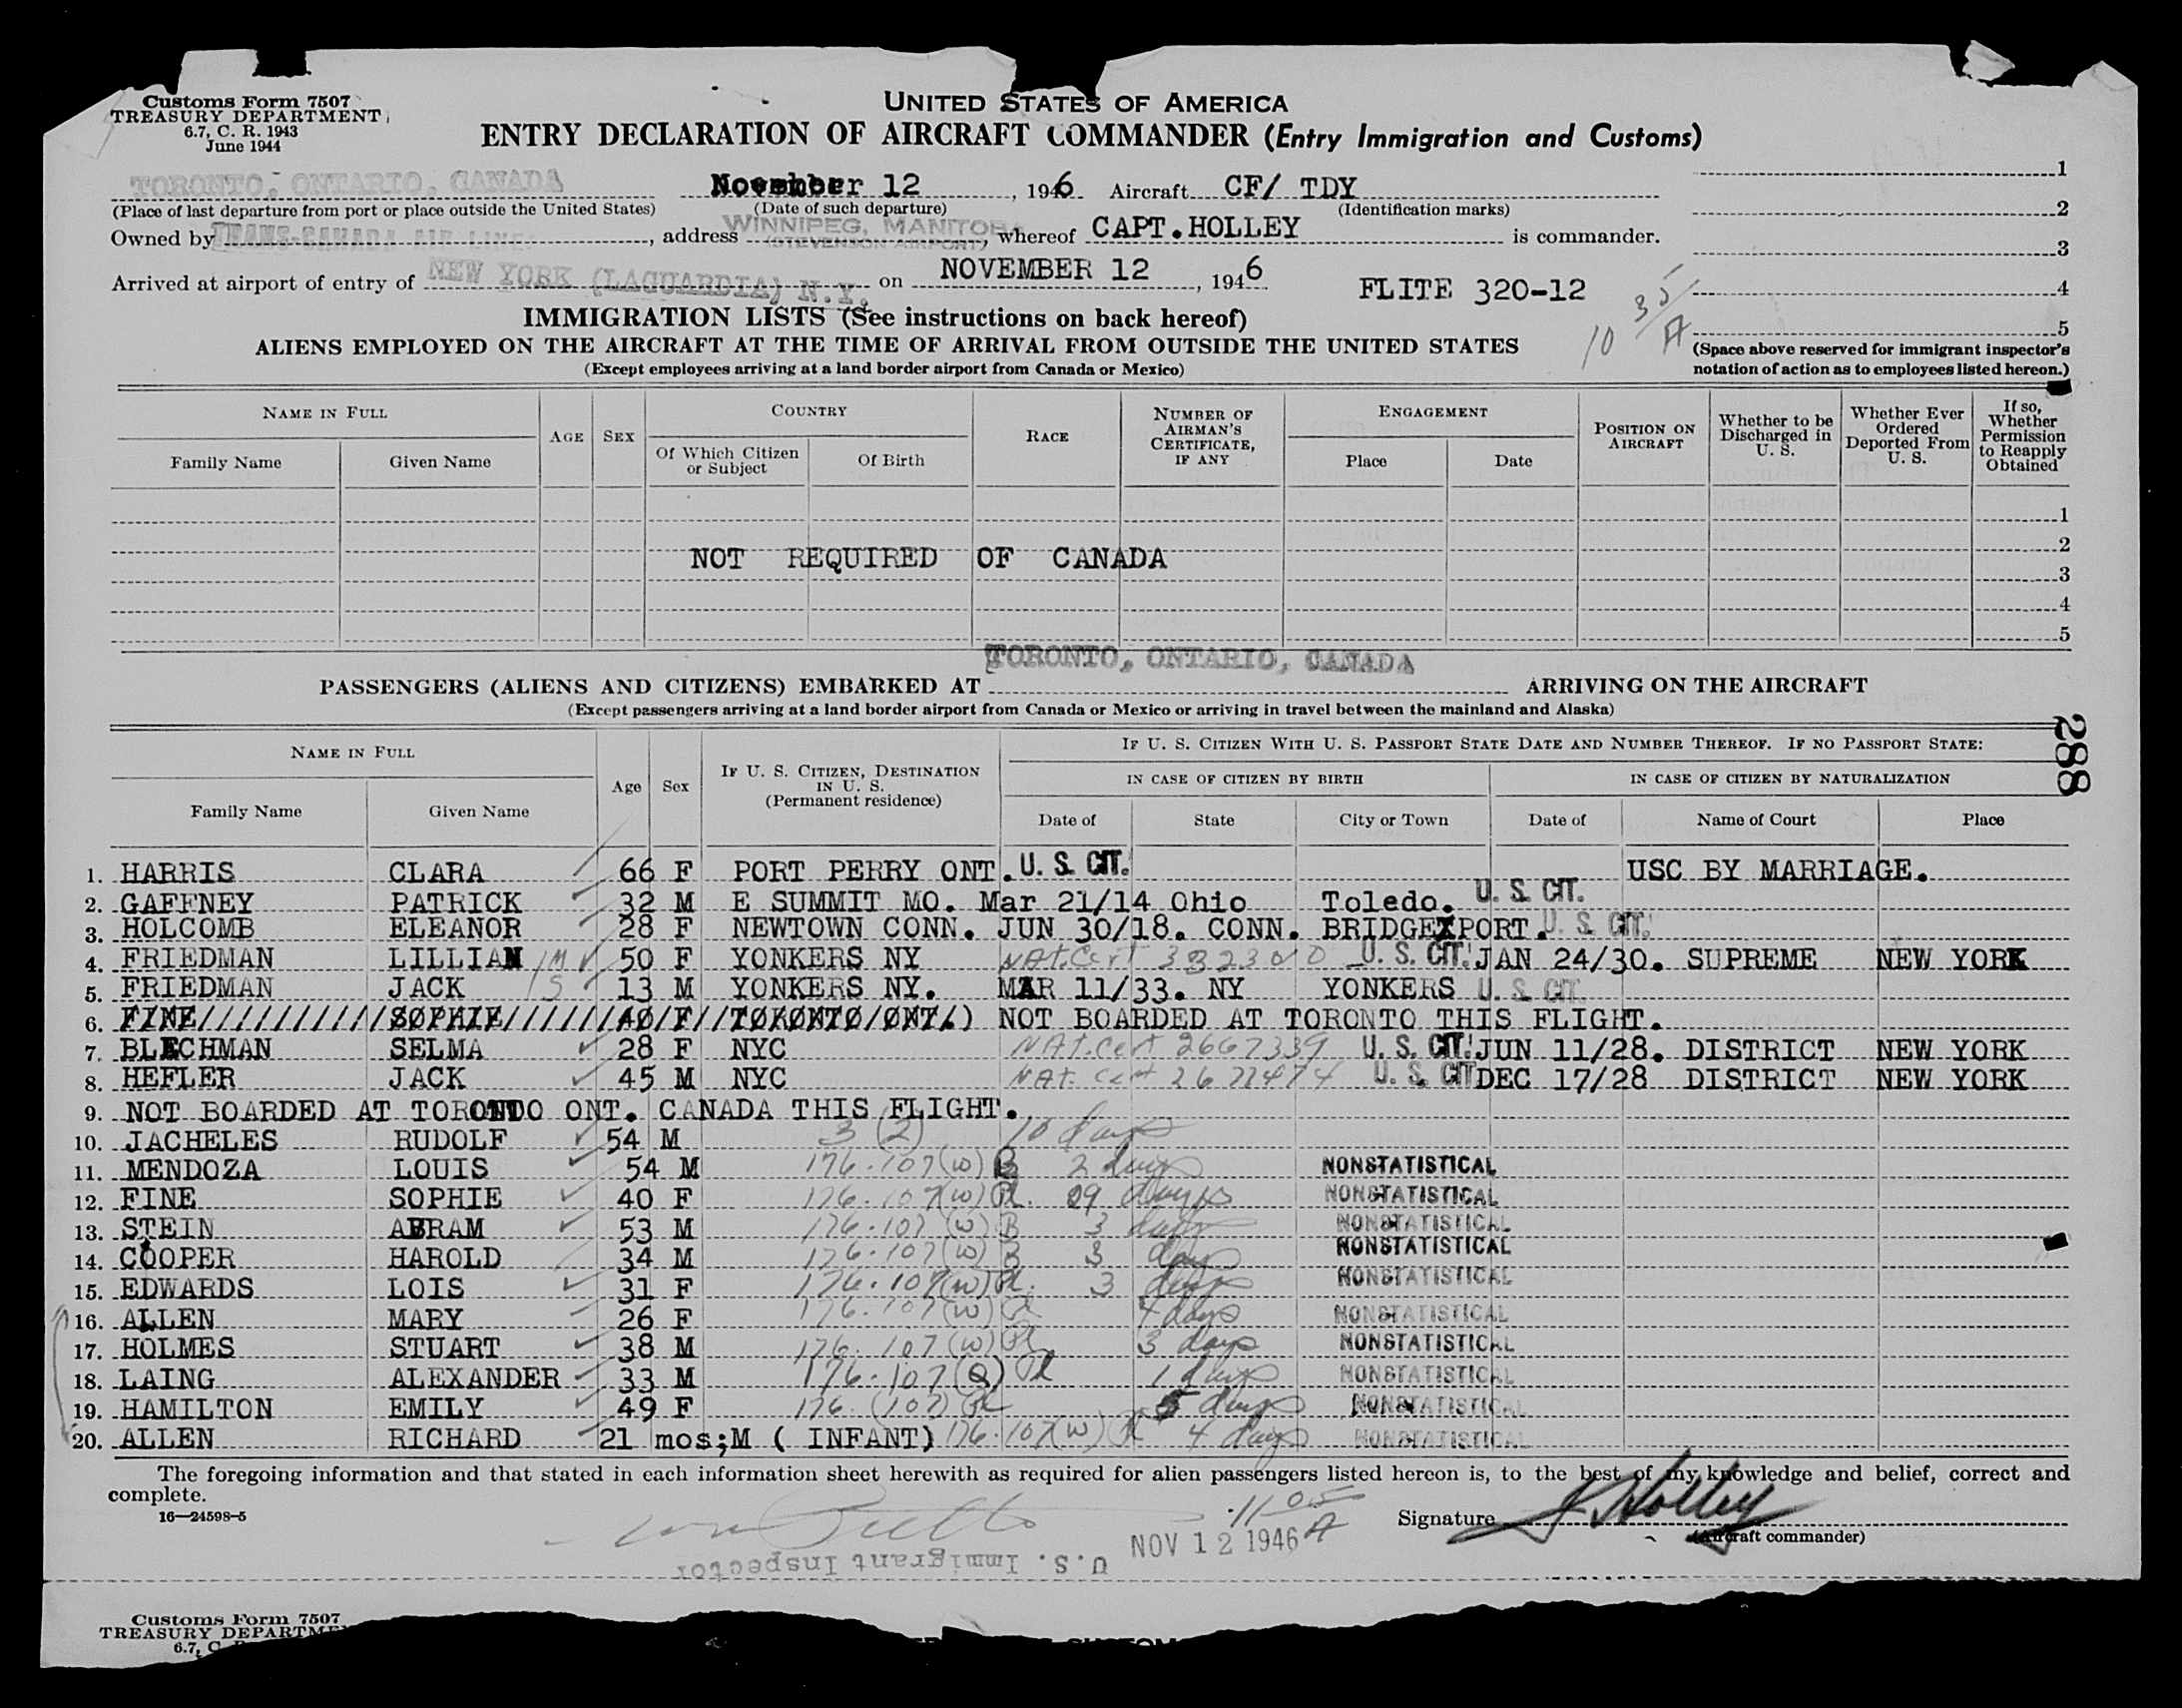 Customs Form 7507
TREASURY DEPARTMENT
6.7, C. R. 1943
June 1944
UNITED STATES OF AMERICA
ENTRY DECLARATION OF AIRCRAFT COMMANDER (Entry Immigration and Customs)
TORONTO, ONTARIO, CANADA November 12, 1946 Aircraft CF/ TDY
(Place of last departure from port or place outside the United States) (Date of such departure) (Identification marks)
Owned by TRANS-CANADA AIR LINES, address WINNIPEG, MANITOBA (STEVENSON AIRPORT), whereof CAPT.HOLLEY is commander.
Arrived at airport of entry of NEW YORK (LAGUARDIA) N.Y. on NOVEMBER 12, 1946 FLITE 320-12
10 35/A
1
2
3
4
5
(Space above reserved for immigrant inspector's notation of action as to employees listed hereon.)
IMMIGRATION LISTS (See instructions on back hereof)
ALIENS EMPLOYED ON THE AIRCRAFT AT THE TIME OF ARRIVAL FROM OUTSIDE THE UNITED STATES
(Except employees arriving at a land border airport from Canada or Mexico)
NAME IN FULL AGE SEX COUNTRY RACE NUMBER OF AIRMAN'S CERTIFICATE, IF ANY ENGAGEMENT POSITION ON AIRCRAFT Whether to be Discharged in U. S. Whether Ever Ordered Deported From U. S. If so, Whether Permission to Reapply Obtained
Family Name Given Name Of Which Citizen or Subject Of Birth Place Date
1
2
NOT REQUIRED OF CANADA
3
4
5
TORONTO, ONTARIO, CANADA
PASSENGERS (ALIENS AND CITIZENS) EMBARKED AT ARRIVING ON THE AIRCRAFT
(Except passengers arriving at a land border airport from Canada or Mexico or arriving in travel between the mainland and Alaska)
288
NAME IN FULL Age Sex IF U. S. CITIZEN, DESTINATION IN U. S. (Permanent residence) IF U. S. CITIZEN WITH U. S. PASSPORT STATE DATE AND NUMBER THEREOF. IF NO PASSPORT STATE:
IN CASE OF CITIZEN BY BIRTH IN CASE OF CITIZEN BY NATURALIZATION
Family Name Given Name Date of State City or Town Date of Name of Court Place
1. HARRIS CLARA 66 F PORT PERRY ONT. U. S. CIT. USC BY MARRIAGE.
2. GAFFNEY PATRICK 32 M E SUMMIT MO. Mar 21/14 Ohio Toledo. U. S. CIT.
3. HOLCOMB ELEANOR 28 F NEWTOWN CONN. JUN 30/18. CONN. BRIDGEXPORT. U. S. CIT.
4. FRIEDMAN LILLIAN M 50 F YONKERS NY Nat. Cert U. S. CIT. JAN 24/30. SUPREME NEW YORK
5. FRIEDMAN JACK S 13 M YONKERS NY. MAR 11/33. NY YONKERS U. S. CIT.
6. FINE//////////SOPHIE//////40/F//TORONTO/ONT.) NOT BOARDED AT TORONTO THIS FLIGHT.
7. BLECHMAN SELMA 28 F NYC Nat. Cert 2667339 U. S. CIT. JUN 11/28. DISTRICT NEW YORK
8. HEFLER JACK 45 M NYC Nat. Cert U. S. CIT DEC 17/28 DISTRICT NEW YORK
9. NOT BOARDED AT TORONTO ONT. CANADA THIS FLIGHT.
10. JACHELES RUDOLF 54 M 3 (2) 10 days
11. MENDOZA LOUIS 54 M 176.107(W) B 2 days NONSTATISTICAL
12. FINE SOPHIE 40 F 176.107(W) 29 days NONSTATISTICAL
13. STEIN ABRAM 53 M 176.107 (W) B 3 days NONSTATISTICAL
14. COOPER HAROLD 34 M 176.107(W) B 3 days NONSTATISTICAL
15. EDWARDS LOIS 31 F 176.107(W) Pl. 3 days NONSTATISTICAL
16. ALLEN MARY 26 F 176.107(W) Pl 4 days NONSTATISTICAL
17. HOLMES STUART 38 M 176.107 (W) Pl 3 days NONSTATISTICAL
18. LAING ALEXANDER 33 M 176.107 (Q) Pl 1 days NONSTATISTICAL
19. HAMILTON EMILY 49 F 176.(107) Pl 5 days NONSTATISTICAL
20. ALLEN RICHARD 21 mos;M ( INFANT) 176.107(W) Pl 4 days NONSTATISTICAL
The foregoing information and that stated in each information sheet herewith as required for alien passengers listed hereon is, to the best of my knowledge and belief, correct and
complete.
16—24598-5
11 05 A
NOV 12 1946
U.S. Immigrant Inspector
Signature J Holley
(Aircraft commander)
Customs Form 7507
TREASURY DEPARTME
6.7, C